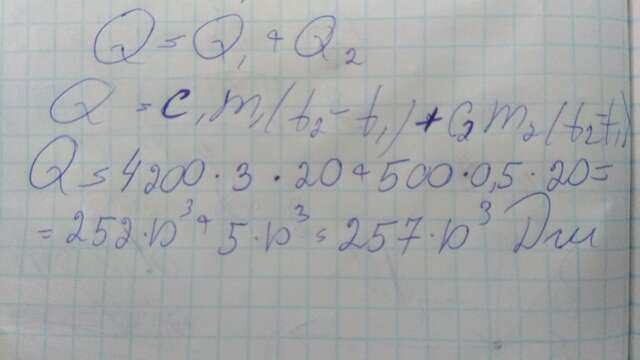 Q = Q₁ + Q₂
Q = c₁m₁(t₂-t₁)+C₂m₂(t₂-t₁)
Q = 4200·3·20+500·0,5·20=
= 252·10³+5·10³=257·10³ Дж